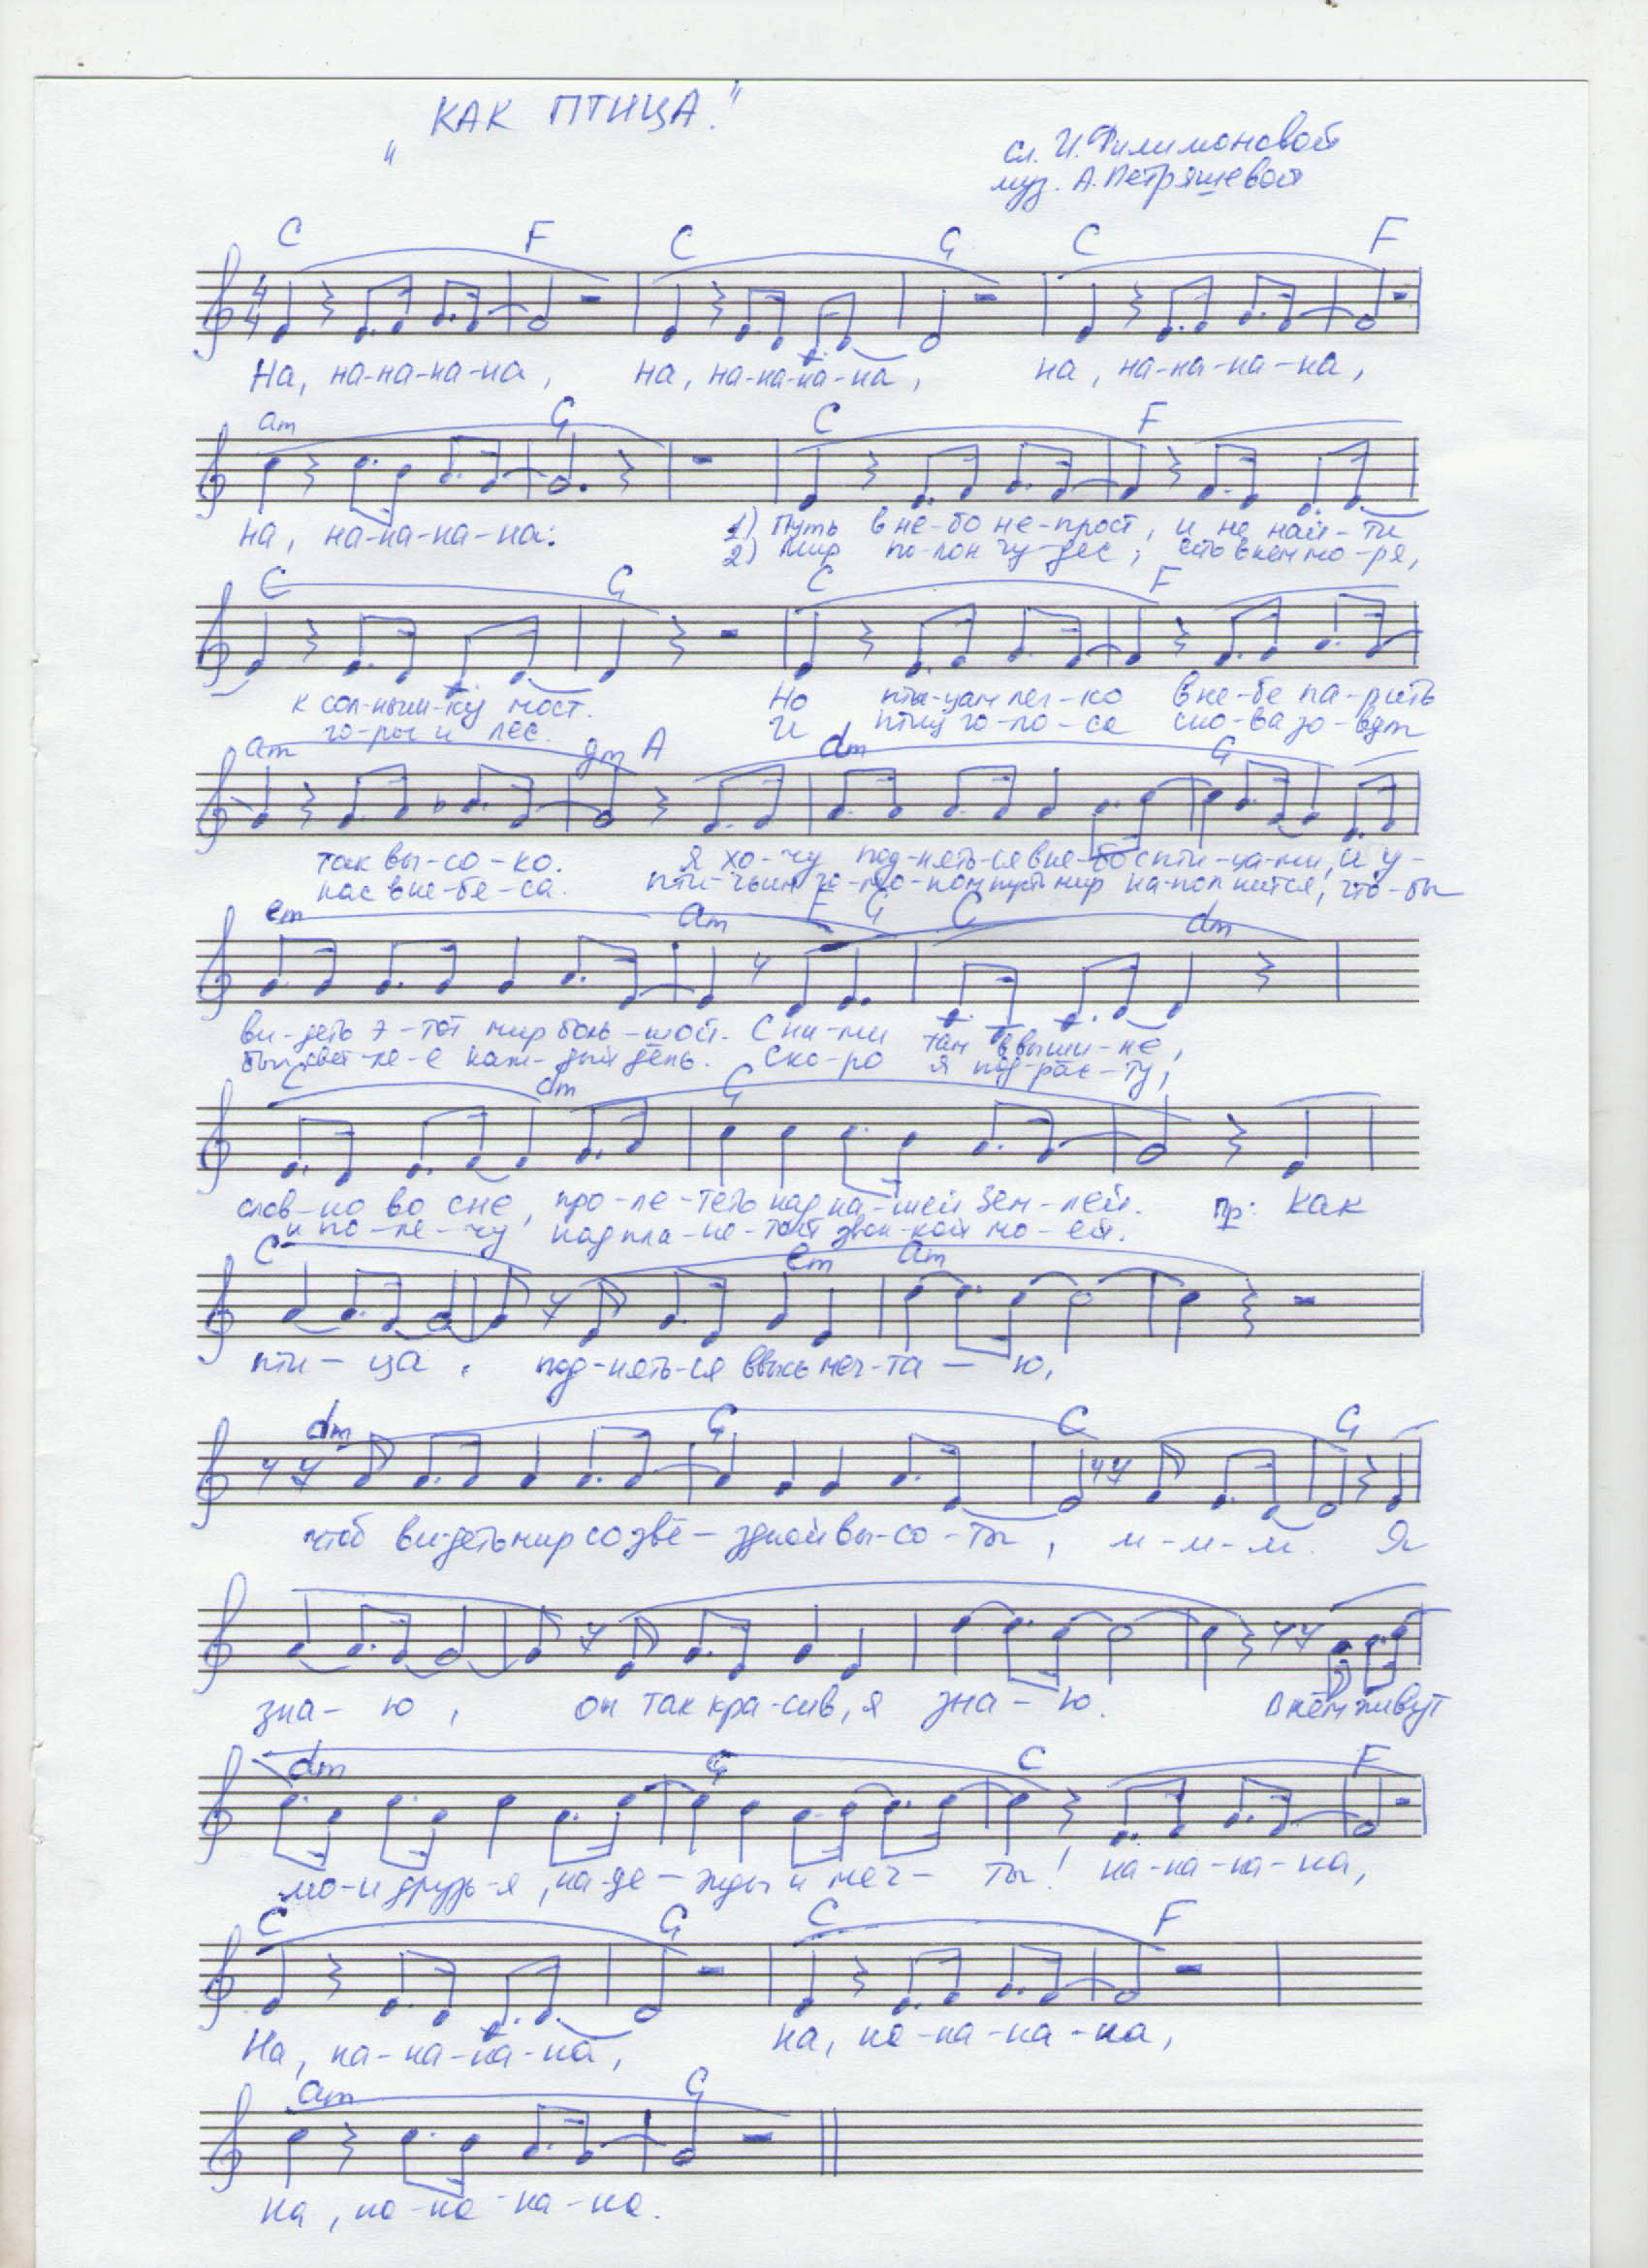 „КАК ПТИЦА."
сл. И. Филимоновой
муз. А. Петряшевой
C F C G C F
4/4
На, на-на-на-на, на, на-на-на-на, на, на-на-на-на,
am G C F
на, на-на-на-на.
1) Путь в не-бо не-прост, и не най-ти
2) Мир по-лон чу-дес, есть в нем мо-ря,
C G C F
к сол-ныш-ку мост. Но пти-цам лег-ко в не-бе па-рить
го-ры и лес. И птиц го-ло-са сно-ва зо-вут
am gm A dm G
так вы-со-ко. Я хо-чу под-нять-ся в не-бо с пти-ца-ми, и у-
нас в не-бе-са. пти-чьим го-мо-ном пусть мир на-пол нится, что-бы
em am F G C dm
ви-деть э-тот мир боль-шой. С ни-ми там в выши-не,
был свет-ле-е каж-дый день. Ско-ро я под-рас-ту,
C dm G
слов-но во сне, про-ле-теть над на-шей Зем-лей. Пр: Как
и по-ле-чу над пла-не-той звон-кой мо-ей.
C em am
пти-ца, под-нять-ся ввысь меч-та-ю,
dm G C G
чтоб ви-деть мир со звё-здной вы-со-ты, м-м-м. Я
зна-ю, он так кра-сив, я зна-ю. В нём живут
dm G C F
мо-и друзь-я, на-де-жды и меч-ты! на-на-на-на,
C G C F
На, на-на-на-на, на, на-на-на-на,
am G
на, на-на-на-на.